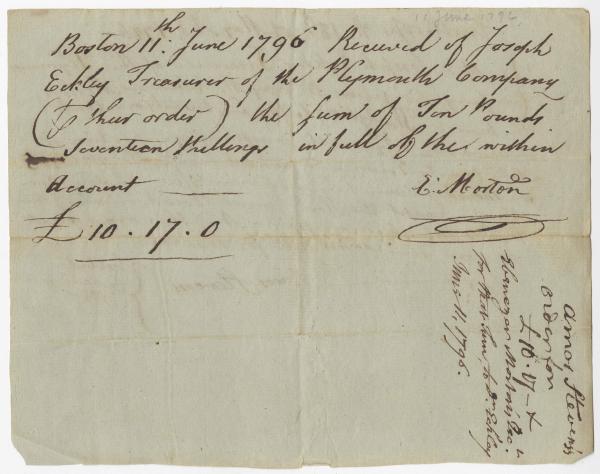 11 June 1796.
Boston 11th: June 1796 Received of Joseph
Eckley Treasurer of the Plymouth Company
(by their order) the sum of Ten Pounds
Seventeen Shillings in full of the within
Account
E. Morton
£ 10.17.0
Amos Stevens's
order for
£ 10.17
Ebenezer Morton's
for to Eckley
June 11, 1796.